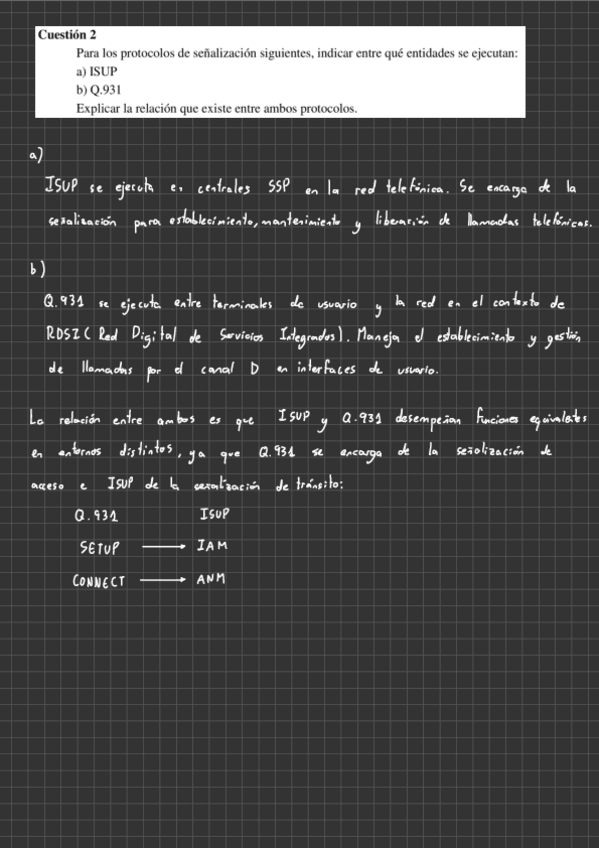 Cuestión 2
Para los protocolos de señalización siguientes, indicar entre qué entidades se ejecutan:
a) ISUP
b) Q.931
Explicar la relación que existe entre ambos protocolos.
a)
ISUP se ejecuta en centrales SSP en la red telefónica. Se encarga de la
señalización para establecimiento, mantenimiento y liberación de llamadas telefónicas.
b)
Q.931 se ejecuta entre terminales de usuario y la red en el contexto de
RDSI (Red Digital de Servicios Integrados). Maneja el establecimiento y gestión
de llamadas por el canal D en interfaces de usuario.
La relación entre ambos es que ISUP y Q.931 desempeñan funciones equivalentes
en entornos distintos, ya que Q.931 se encarga de la señalización de
acceso e ISUP de la señalización de tránsito:
Q.931 ISUP
SETUP → IAM
CONNECT → ANM